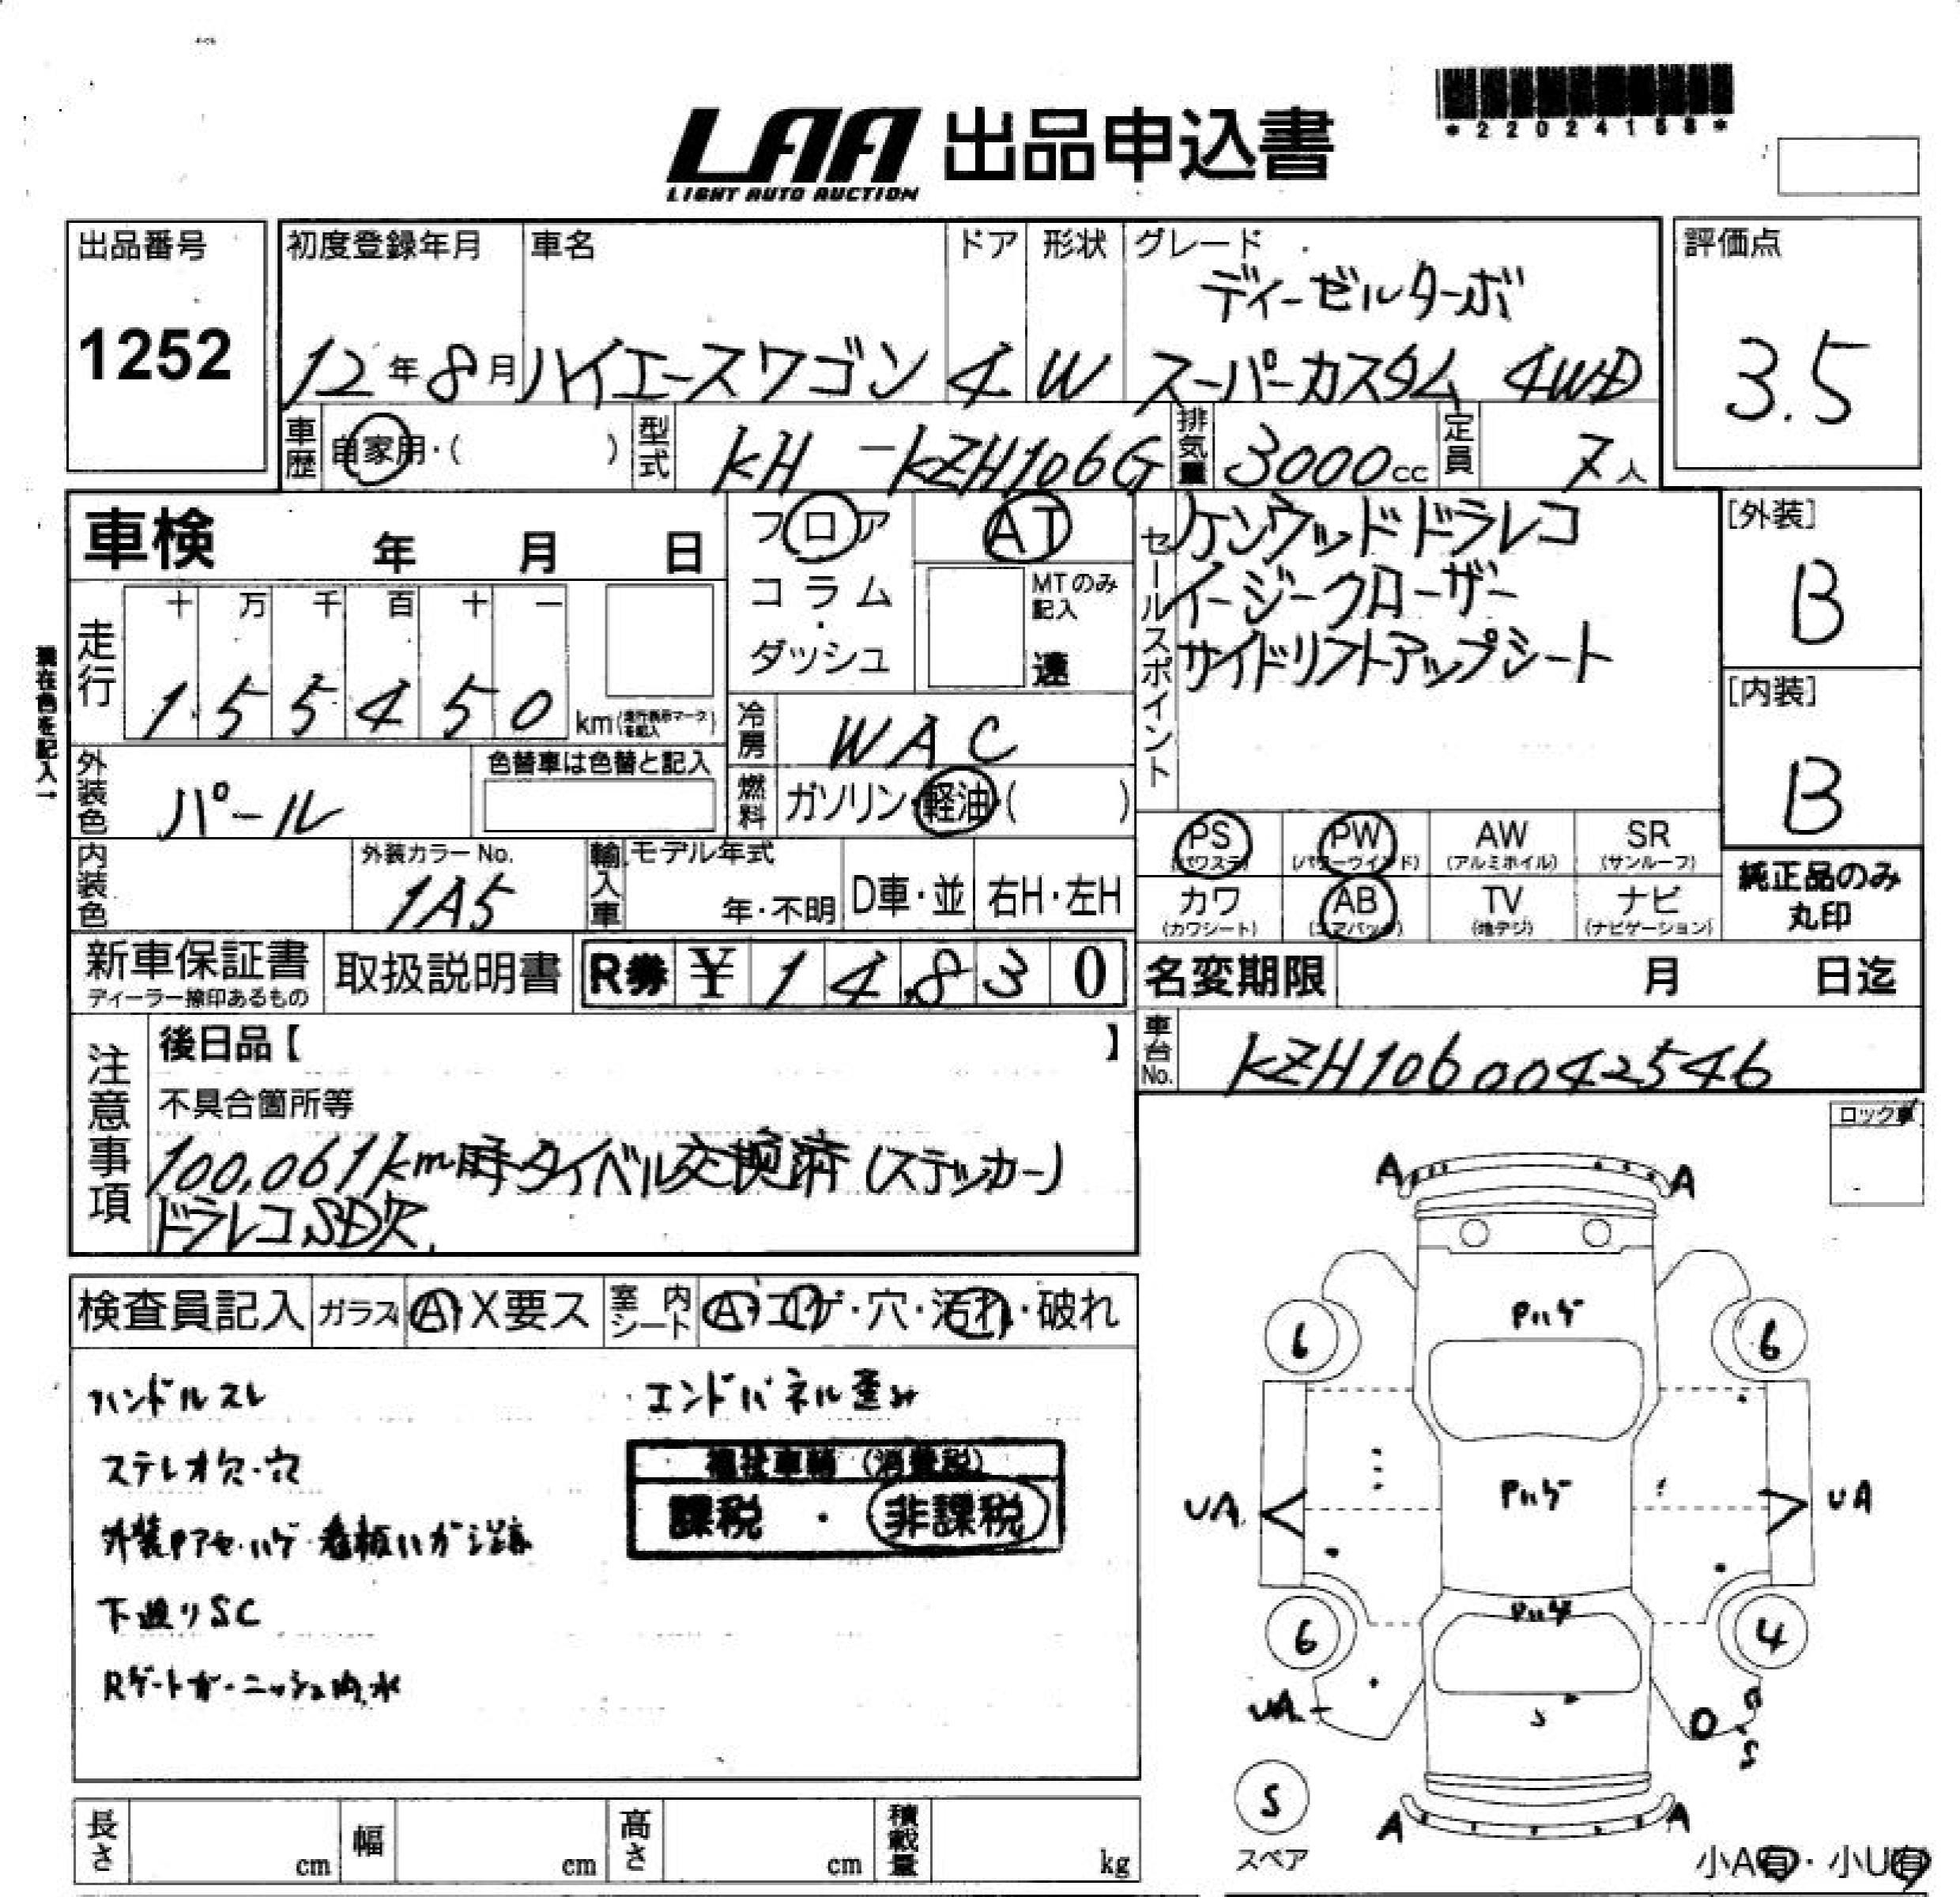 *22024158*
LAA 出品申込書
LIGHT AUTO AUCTION
出品番号
1252
初度登録年月
12年8月
車名
ハイエースワゴン
ドア
4
形状
W
グレード
ディーゼルターボ
スーパーカスタム 4WD
評価点
3.5
車歴
自家用・( )
型式
KH-KZH106G
排気量
3000cc
定員
7人
車検 年 月 日
走行
十 万 千 百 十 一
1 5 5 4 5 0 km
現在色を記入→
外装色
パール
色替車は色替と記入
内装色
外装カラーNo.
1A5
フロア
コラム
・
ダッシュ
AT
MTのみ
記入
速
冷房
WAC
燃料
ガソリン・軽油・( )
輸入車
モデル年式
年・不明
D車・並
右H・左H
セールスポイント
ケンウッドドラレコ
イージークローザー
サイドリフトアップシート
[外装]
B
[内装]
B
PS
(パワステ)
PW
(パワーウインド)
AW
(アルミホイル)
SR
(サンルーフ)
カワ
(カワシート)
AB
(エアバッグ)
TV
(地デジ)
ナビ
(ナビゲーション)
純正品のみ
丸印
新車保証書
ディーラー捺印あるもの
取扱説明書
R券 ¥ 14,830
名変期限 月 日迄
車台No.
KZH1060042546
注意事項
後日品【 】
不具合箇所等
100,061km時タイベル交換済(ステッカー)
ドラレコSD欠
ロック車
検査員記入
ガラス
A・X要ス
室内シート
A・コゲ・穴・汚れ・破れ
ハンドルスレ
ステレオ欠・穴
外装Pアセ・ハゲ・看板ハガシ跡
下廻りSC
Rゲートガーニッシュ内水
エンドパネル歪み
福祉車輌(消費税)
課税 ・ 非課税
A A
Pハゲ
6 6
Pハゲ
UA UA
Pハゲ
6 4
UA
S
S
S
スペア
A A
小A有・小U有
長さ cm
幅 cm
高さ cm
積載量 kg